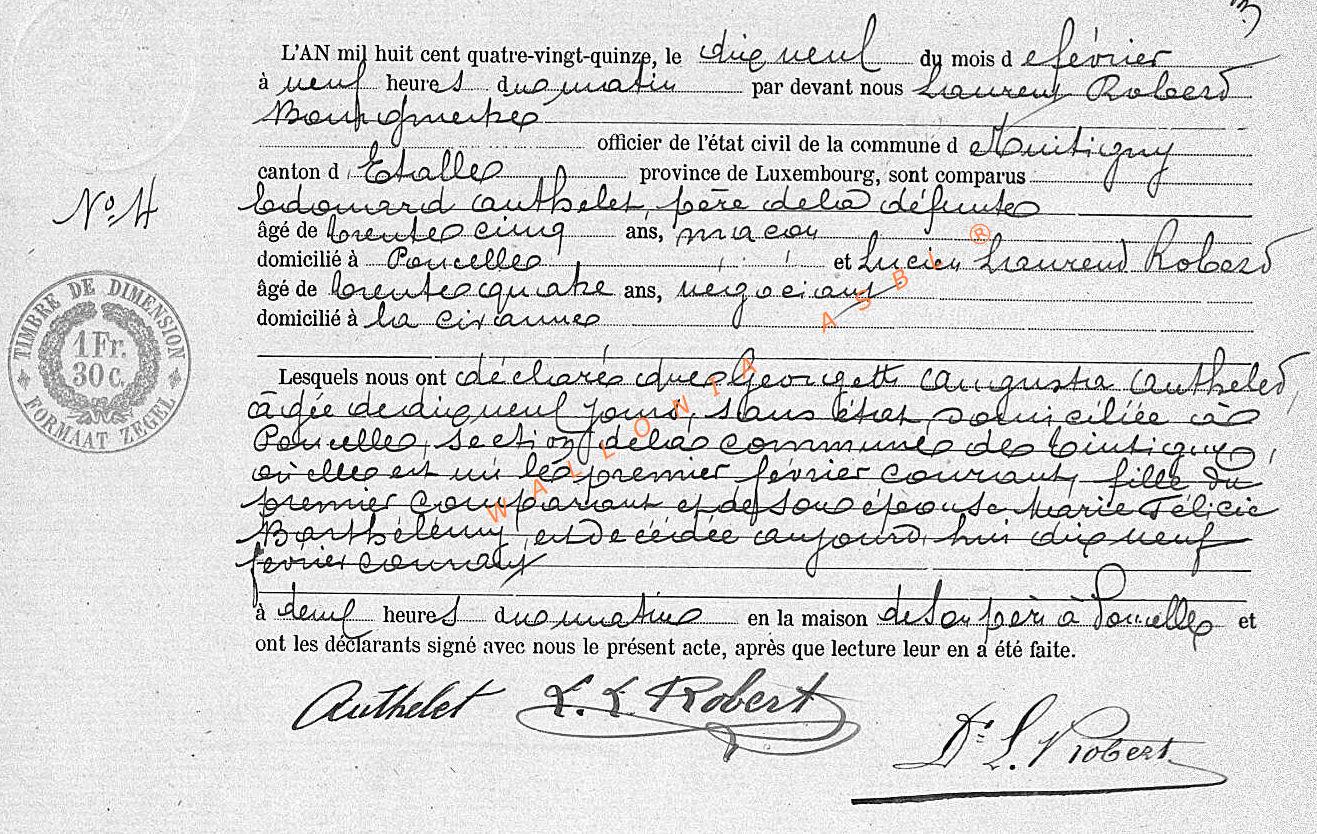 3
L'AN mil huit cent quatre-vingt-quinze, le dix neuf du mois d e février
à neuf heures du matin par devant nous Laurent Robert
Bourgmestre
officier de l'état civil de la commune d e Tintigny
canton d' Etalle province de Luxembourg, sont comparus
Edouard Authelet, père de la défunte
âgé de trente cinq ans, maçon
domicilié à Poncelle et Lucien Laurent Robert
âgé de trente quatre ans, négociant
domicilié à la
Lesquels nous ont déclaré que Georgette Augusta Authelet,
âgée de dix neuf jours, sans état, domiciliée à
Poncelle, section de la commune de Tintigny,
où elle est né le premier février courant, fille du
premier comparant et de son épouse Marie Félicie
Barthélemy, est décédée aujourd'hui dix neuf
février courant
à heures du matin en la maison de son père à Poncelle et
ont les déclarants signé avec nous le présent acte, après que lecture leur en a été faite.
Authelet L. L. Robert
Dr. L. Robert
No. 4
TIMBRE DE DIMENSION
1 Fr.
30 c.
FORMAAT ZEGEL
WALLONIA ASBL ®